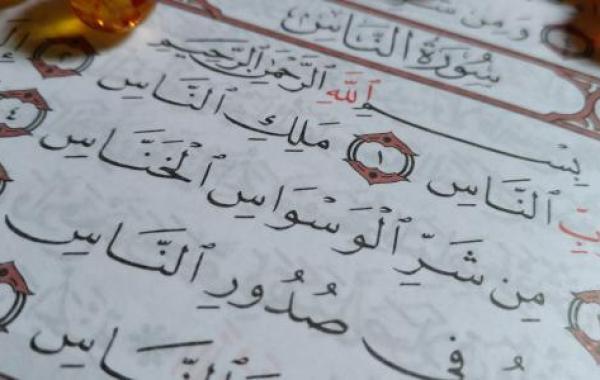 وَمِن
سُورَةُ النَّاسِ
بِسْمِ ٱللَّهِ ٱلرَّحْمَٰنِ ٱلرَّحِيمِ
بِّ ٱلنَّاسِ ١ مَلِكِ ٱلنَّاسِ ٢
مِن شَرِّ ٱلْوَسْوَاسِ ٱلْخَنَّاسِ ٤
فِى صُدُورِ ٱلنَّاسِ
وَٱلنَّاسِ